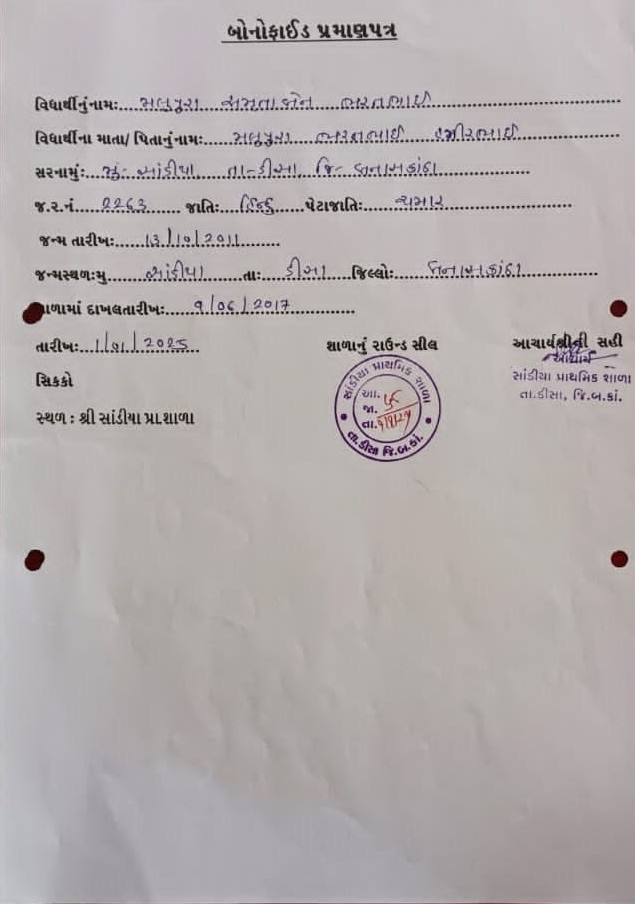 બોનોફાઈડ પ્રમાણપત્ર
વિધાર્થીનુંનામઃ... મલુપુરા મમતાબેન ભરતભાઈ
વિધાર્થીના માતા/ પિતાનુંનામઃ... મલુપુરા ભરતભાઈ હમીરભાઈ
સરનામુંઃ... મુઃ સાંડીયા તા- ડીસા જિ- બનાસકાંઠા
જ.ર.નં ... 2263 ... જાતિઃ... હિન્દુ ... પેટાજાતિઃ... ચમાર
જન્મ તારીખઃ... 13/10/2011
જન્મસ્થળઃમુ ... સાંડીયા ... તાઃ ... ડીસા જિલ્લોઃ ... બનાસકાંઠા
શાળામાં દાખલતારીખઃ... 9/06/2017
તારીખઃ... 1/01/2025 શાળાનું રાઉન્ડ સીલ આચાર્યશ્રીની સહી
આચાર્ય
સિકકો સાંડીયા પ્રાથમિક શાળા
તા.ડીસા, જિ.બ.કાં.
સ્થળ : શ્રી સાંડીયા પ્રા.શાળા
સાંડીયા પ્રાથમિક શાળા
આ.
જા.
તા.
તા.ડીસા જિ.બ.કાં.